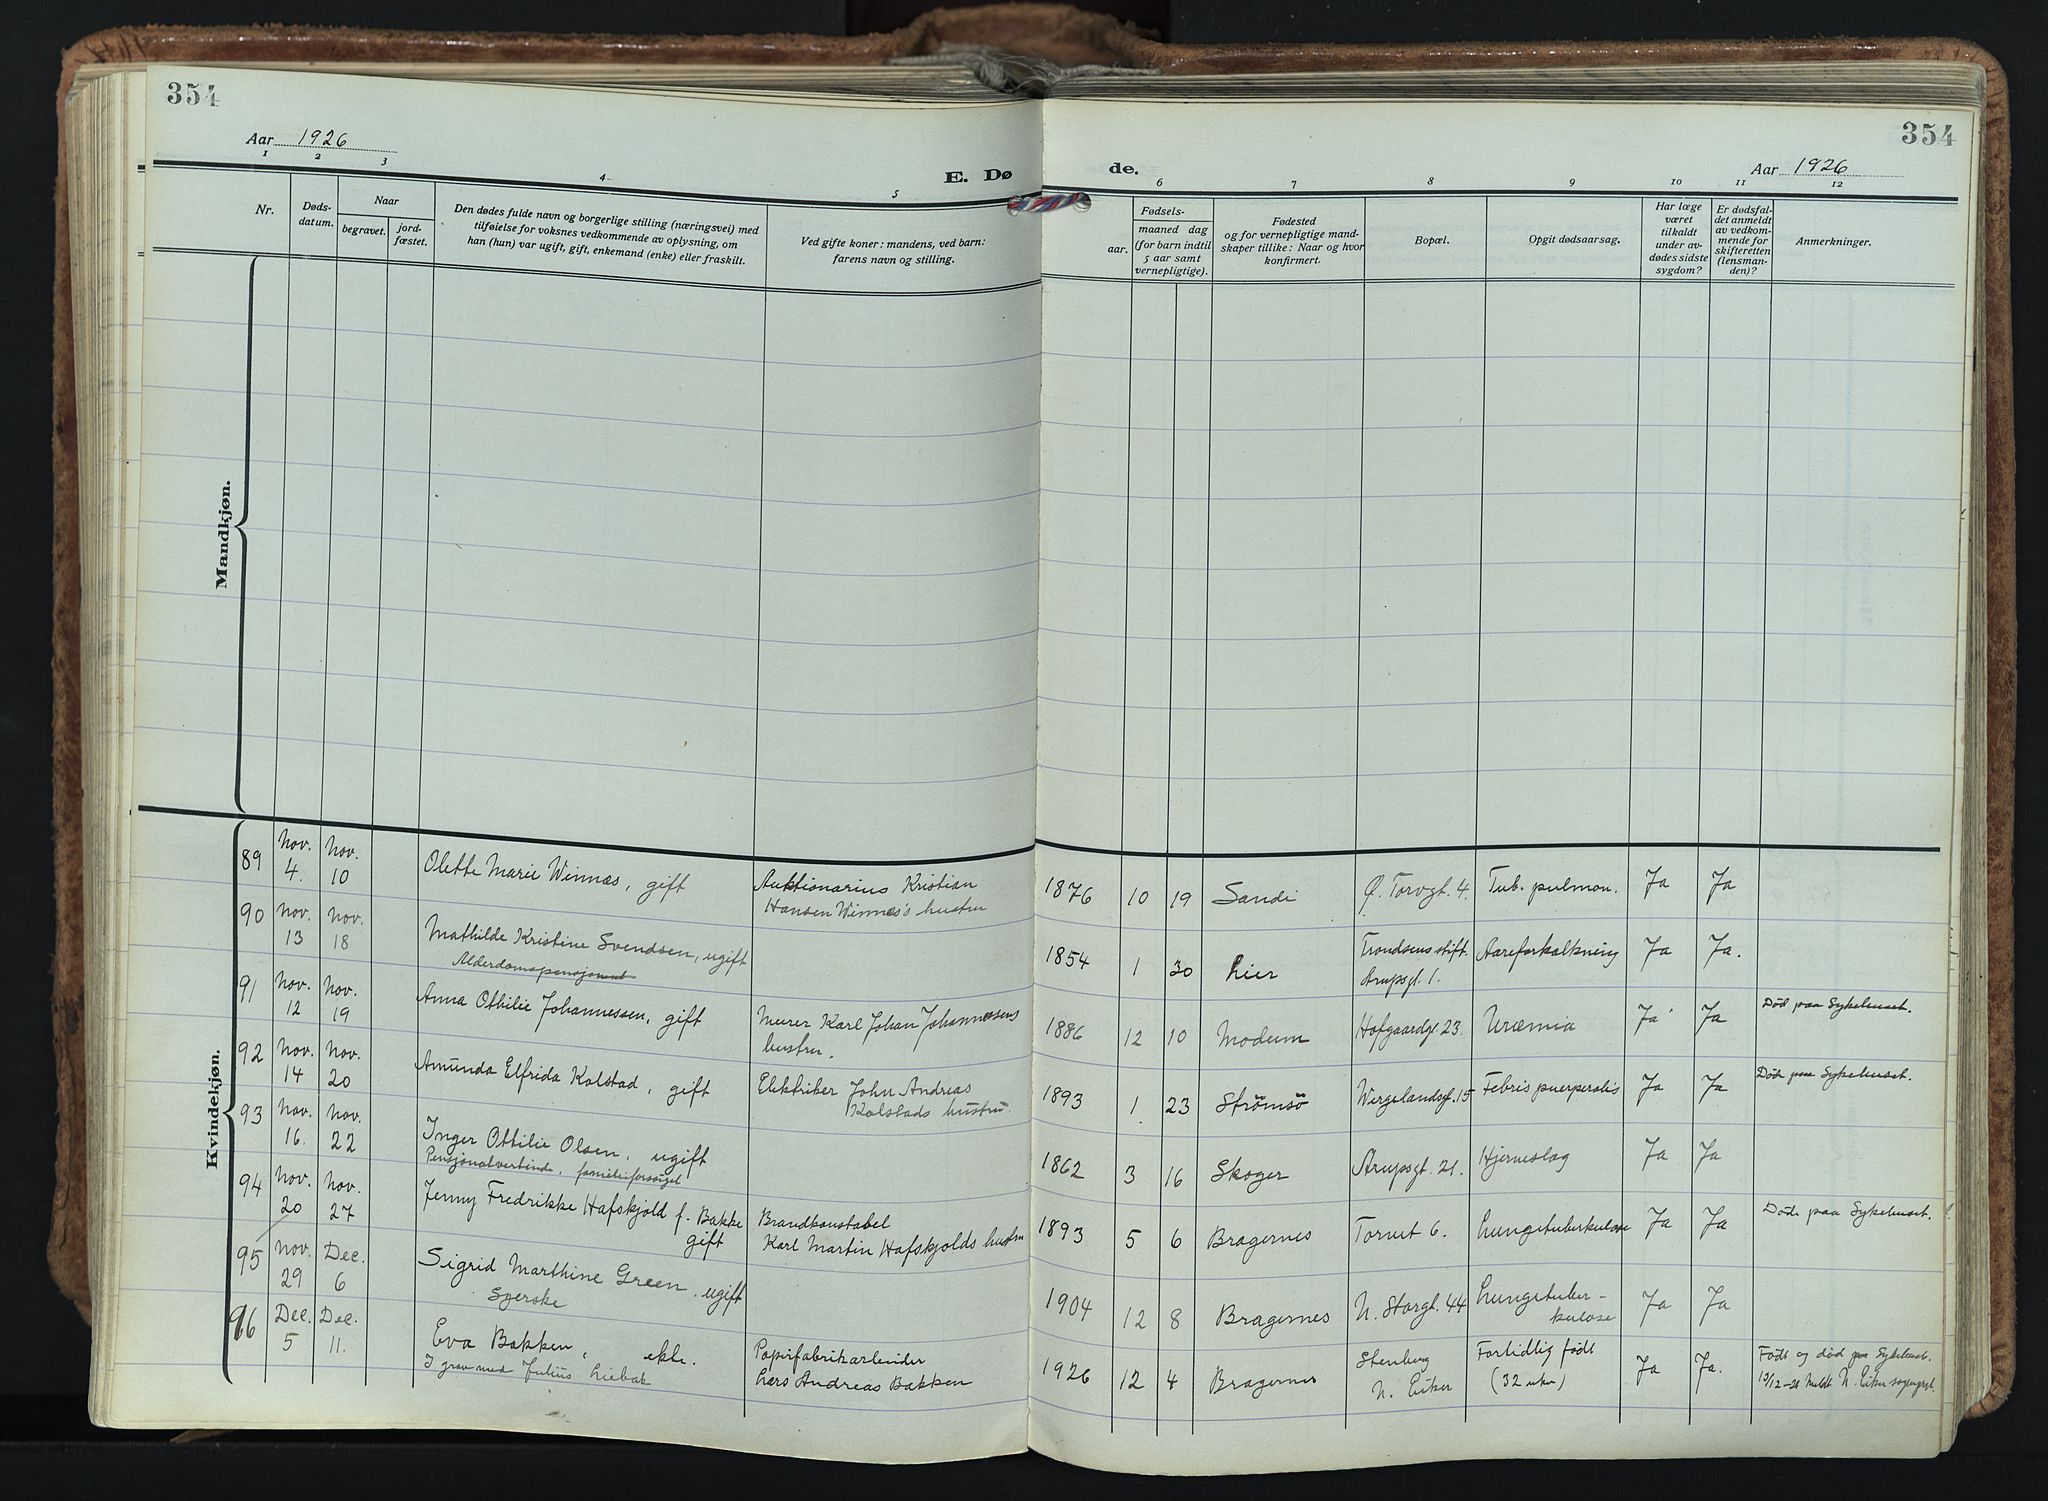 354
354
Aar 1926
E. Dø
de.
Aar 1926
1 2 3 4 5 6 7 8 9 10 11 12
Nr.
Døds-
datum.
Naar
begravet.
jord-
fæstet.
Den dødes fulde navn og borgerlige stilling (næringsvei) med
tilføielse for voksnes vedkommende av oplysning, om
han (hun) var ugift, gift, enkemand (enke) eller fraskilt.
Ved gifte koner: mandens, ved barn:
farens navn og stilling.
Fødsels-
aar.
maaned dag
(for barn indtil
5 aar samt
vernepligtige).
Fødested
og for vernepligtige mand-
skaper tillike: Naar og hvor
konfirmert.
Bopæl.
Opgit dødsaarsag.
Har læge
været
tilkaldt
under av-
dødes sidste
sygdom?
Er dødsfal-
det anmeldt
av vedkom-
mende for
skifteretten
(lensman-
den)?
Anmerkninger.
Mandkjøn.
Kvindekjøn.
89 Nov. 4. Nov. 10 Olette Marie Winnæs, gift Auktionarius Kristian 1876 10 19 Sandi Ø. Torvgt. 4. Tub. pulmon. Ja Ja
Hansen Winnæs's hustru
90 Nov. 13 Nov. 18 Mathilde Kristine Svendsen, ugift 1854 1 30 Lier Trondsens stift. Aareforkalkning Ja Ja.
Alderdomspensjonist Arupsgt. 1.
91 Nov. 12 Nov. 19 Anna Othilie Johannessen, gift Murer Karl Johan Johannesens 1886 12 10 Modum Hofgaardgt 23. Uræmia Ja Ja Död paa Sykehuset.
hustru.
92 Nov. 14 Nov. 20 Amunda Elfrida Kolstad, gift Elektriker John Andreas 1893 1 23 Strömsö Wergelandsgt. 15 Febris puerperalis Ja Ja Döde paa Sykehuset.
Kolstads hustru.
93 Nov. 16. Nov. 22 Inger Othilie Olsen, ugift 1862 3 16 Skoger Arupsgt. 21. Hjerneslag Ja Ja
Pensjonatvertinde, familieforsörget
94 Nov. 20 Nov. 27 Jenny Fredrikke Hafskjold f. Bakke Brandkonstabel 1893 5 6 Bragernes Tornet 6. Lungetuberkulose Ja Ja Döde paa Sykehuset.
gift Karl Martin Hafskjolds hustru
95 Nov. 29 Dec. 6 Sigrid Marthine Green, ugift 1904 12 8 Bragernes N. Storgt. 44 Lungetuber- Ja Ja
Syerske kulose
96 Dec. 5 Dec. 11. Eva Bakken, ekte. Papirfabrikarbeider 1926 12 4 Bragernes Stenberg Fortidlig født Ja Ja. Født og død paa Sykehuset.
I grav med Julius Liebak Lars Andreas Bakken N. Eiker (32 uker) 13/12-26 Meldt N. Eiker sogneprst.